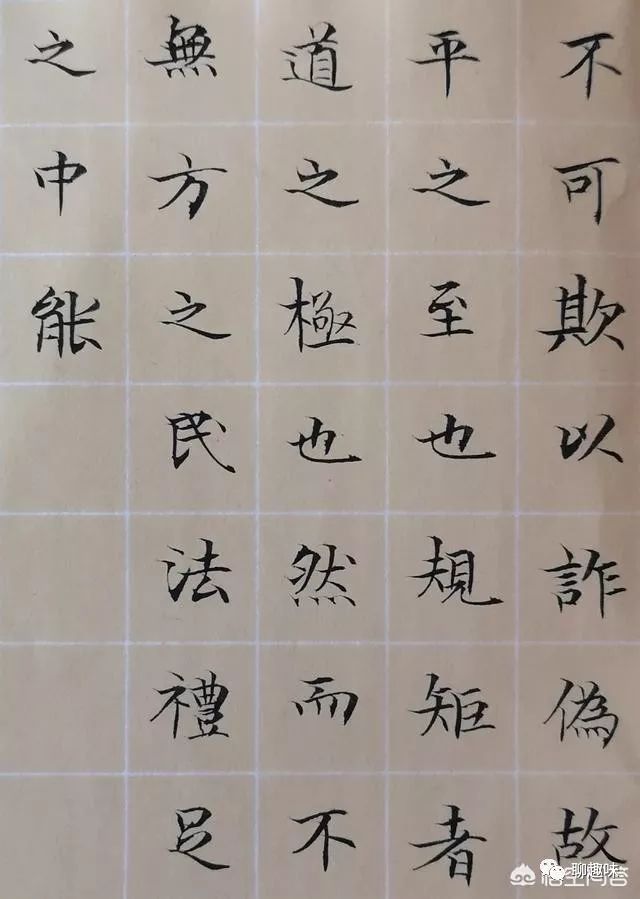 不可欺以詐偽故
平之至也規矩者
道之極也然而不
無方之民法禮足
之中能
聊趣味
悟空问答